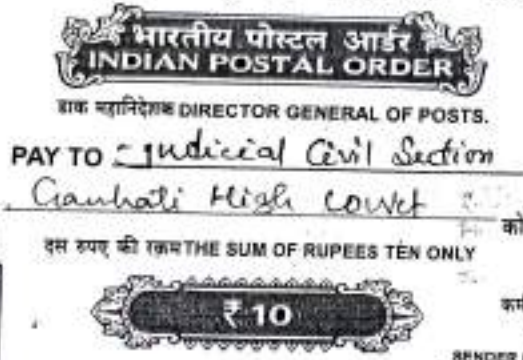 भारतीय पोस्टल आर्डर
INDIAN POSTAL ORDER
डाक महानिदेशक DIRECTOR GENERAL OF POSTS.
PAY TO Judicial Civil Section
Gauhati High Court
को
दस रुपए की रक़म THE SUM OF RUPEES TEN ONLY
₹ 10
SENDER